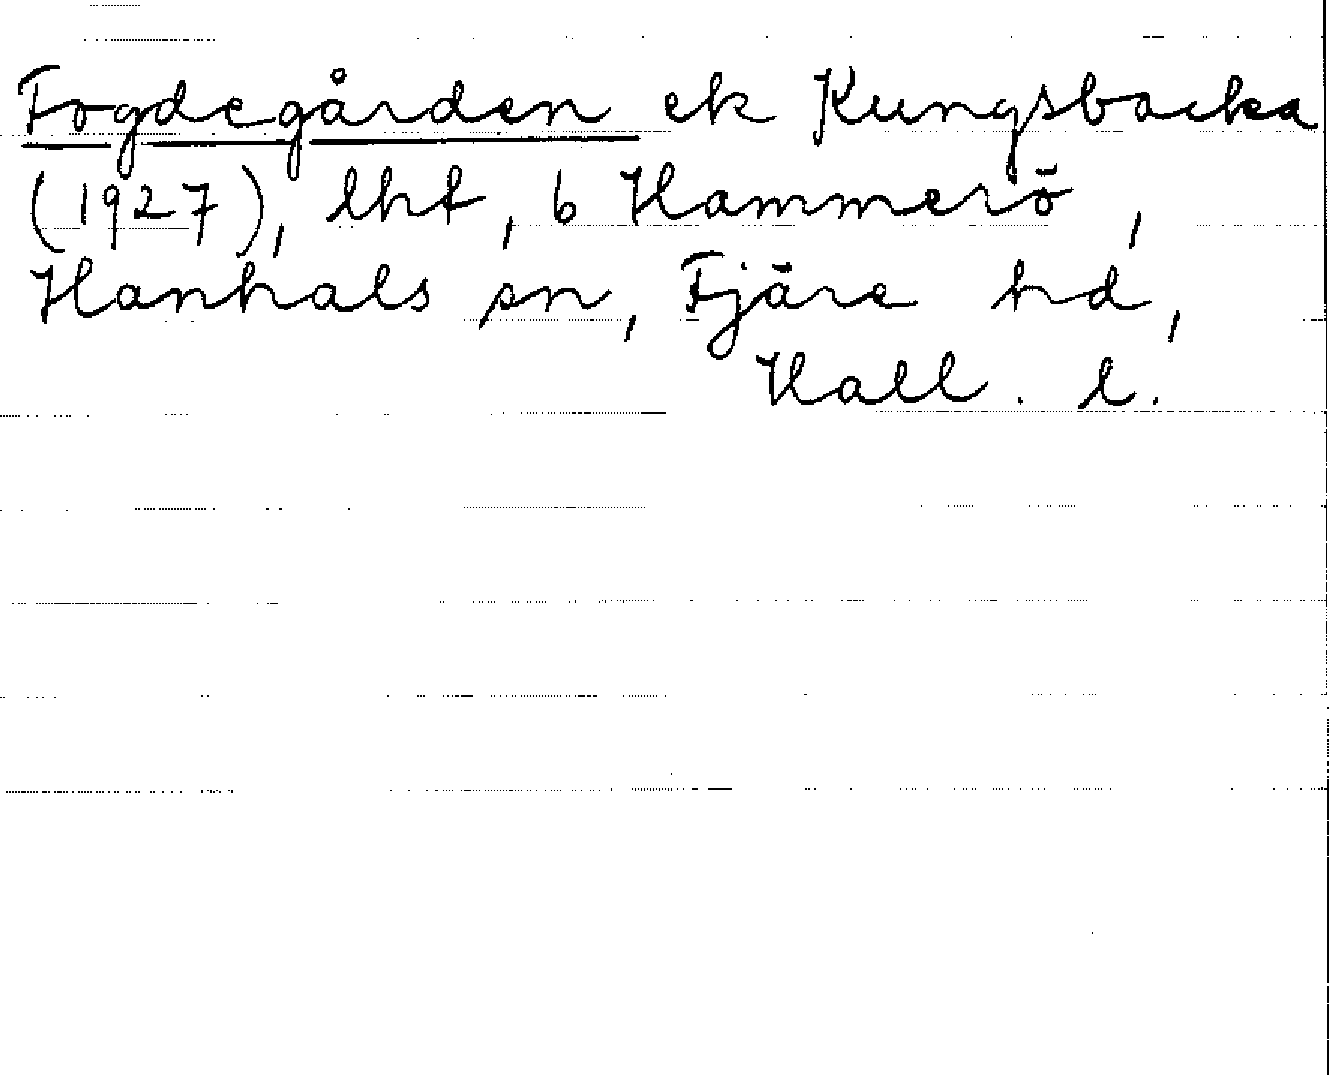 Fogdegården ek Kungsbacka
(1927), lht, b Hammerö,
Hanhals sn, Fjäre hd,
Hall. l.